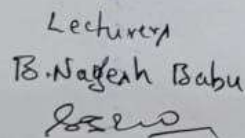 Lecturer
B. Nagesh Babu